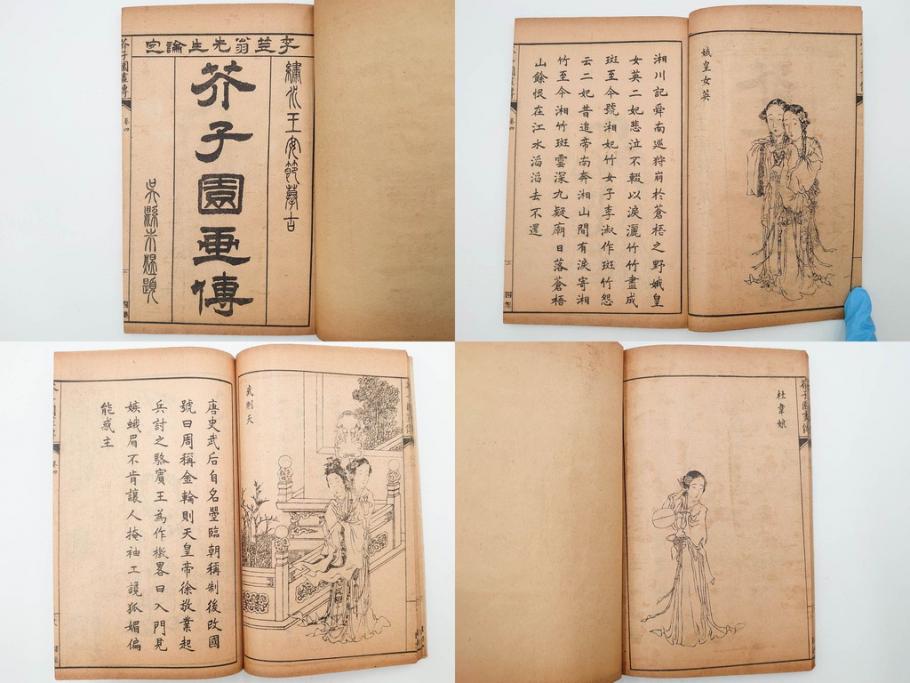 李笠翁先生論定
繡水王安節摹古
芥子園画傳
吳縣
題
芥子園畫傳
卷四
娥皇女英
湘川記舜南巡狩崩於蒼梧之野娥皇
女英二妃悲泣不輟以淚灑竹竹盡成
斑至今號湘妃竹女子李淑作斑竹怨
云二妃昔追帝南奔湘山間有淚寄湘
竹至今湘竹斑雲深九疑廟日落蒼梧
山餘恨在江水滔滔去不還
武則天
唐史武后自名曌臨朝稱制後改國
號曰周稱金輪則天皇帝徐敬業起
兵討之駱賓王為作檄畧曰入門見
嫉蛾眉不肯讓人掩袖工讒狐媚偏
能惑主
杜韋娘
芥子園畫傳